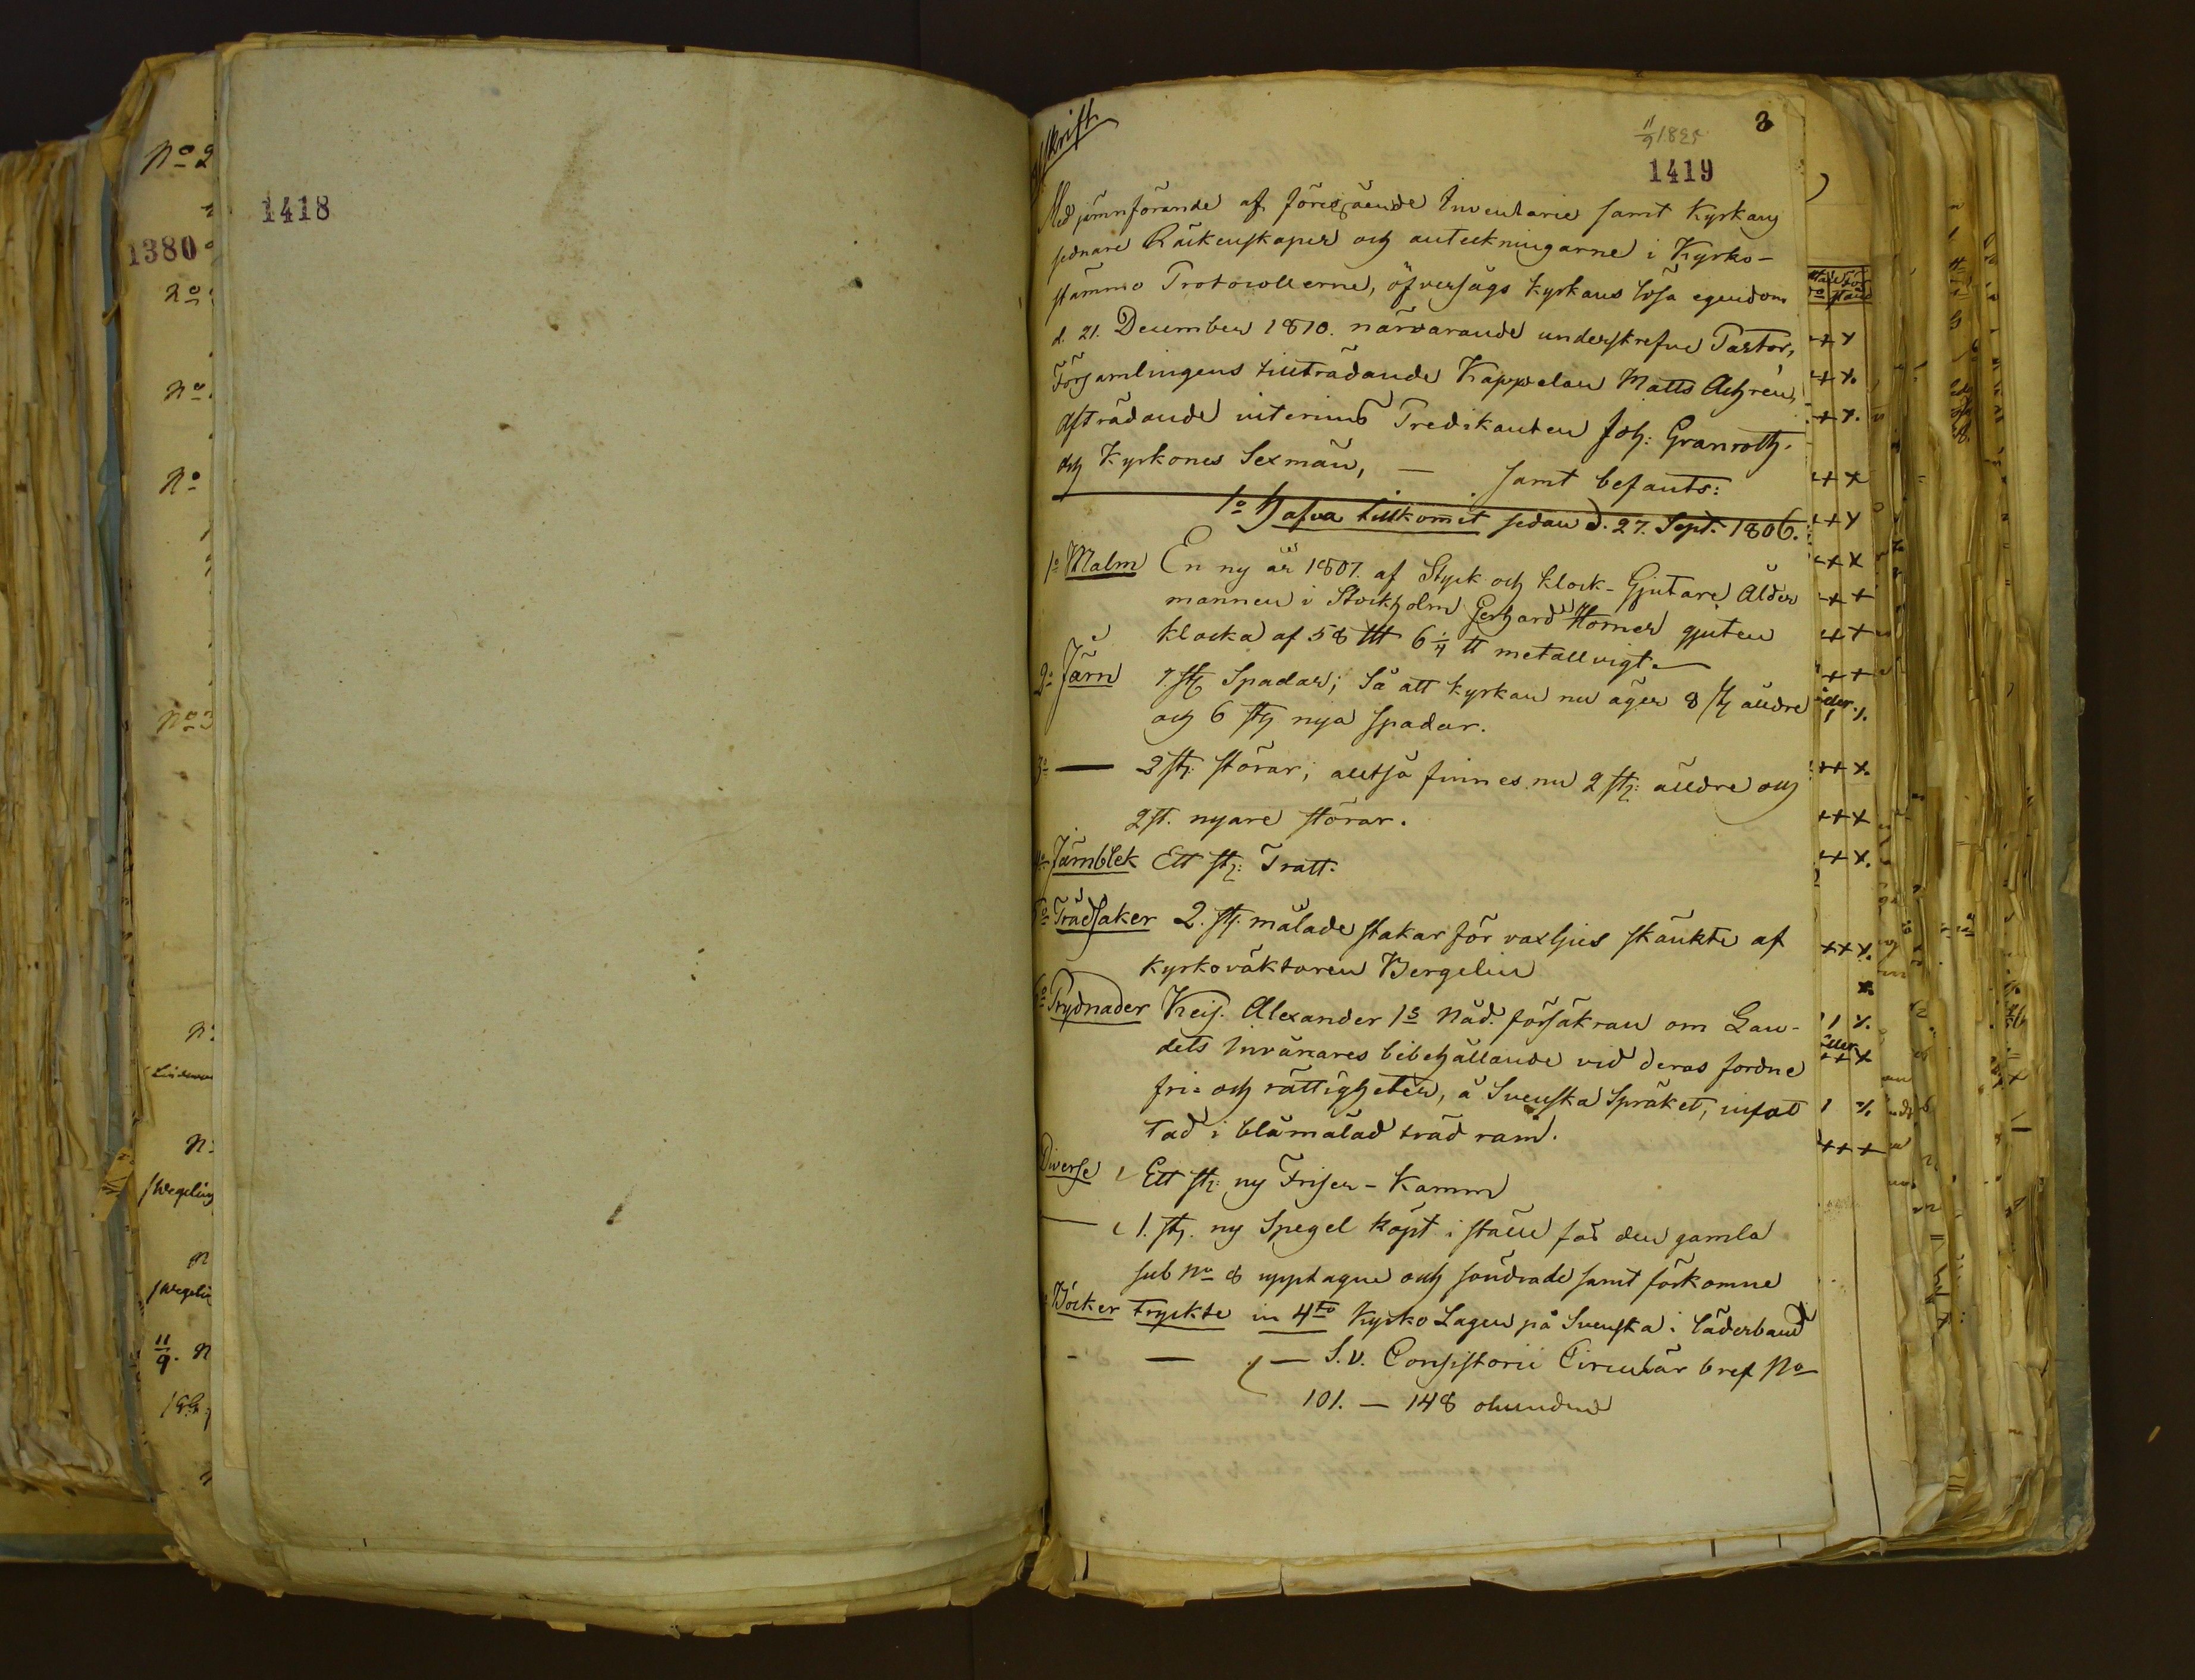 1418
11/9 1825
3
1419
Afskrift
Med jämnförande af föregående Inventarie samt Kyrkans
sednare Räkenskaper och anteckningarne i Kyrko-
stämmo Protocollerne, öfversågs kyrkans lösa egendom
d. 21. December 1810. närvarande underskrefne Pastor,
Församlingens tillträdande Kappelan Matts Achrén,
Afträdande interims Predikanten Joh: Granroth.
och Kyrkones Sexmän, — samt befants:
1o Hafva tillkomit sedan d. 27. Sept. 1806.
1o Malm En ny år 1807. af Styck och klock-Gjutare Ålder
mannen i Stockholm Gerhard Horner gjuten
klocka af 58 ltt 6 1/4 tt metallvigt.
2o Järn 7. st Spadar; Så att kyrkan nu äger 8 st äldre
och 6 st nya spadar.
3o — 2 st: störar; alltså finnes nu 2 st: äldre och
2 st. nyare störar.
Järnblek Ett st: Tratt.
Trädsaker 2. st: målade stakar för vaxljus skänkte af
kyrkoväktaren Bergelin
Prydnader Keis. Alexander 1s Nåd. försäkran om Lan-
dets Invånares bibehållande vid deras fordne
fri- och rättigheter, å Svenska Språket, infat
tad i blåmålad träd ram.
Diverse Ett st: ny Friser-Kamm
— 1. st. ny Spegel köpt i stället för den gamla
sub No 8 upptagne och söndrade samt förkomne
Böcker tryckte in 4to Kyrko Lagen på Svenska i läderband
- — — S.V. Consistorii Circulär bref No
101. — 148 obundne
No 2
1380
No 3